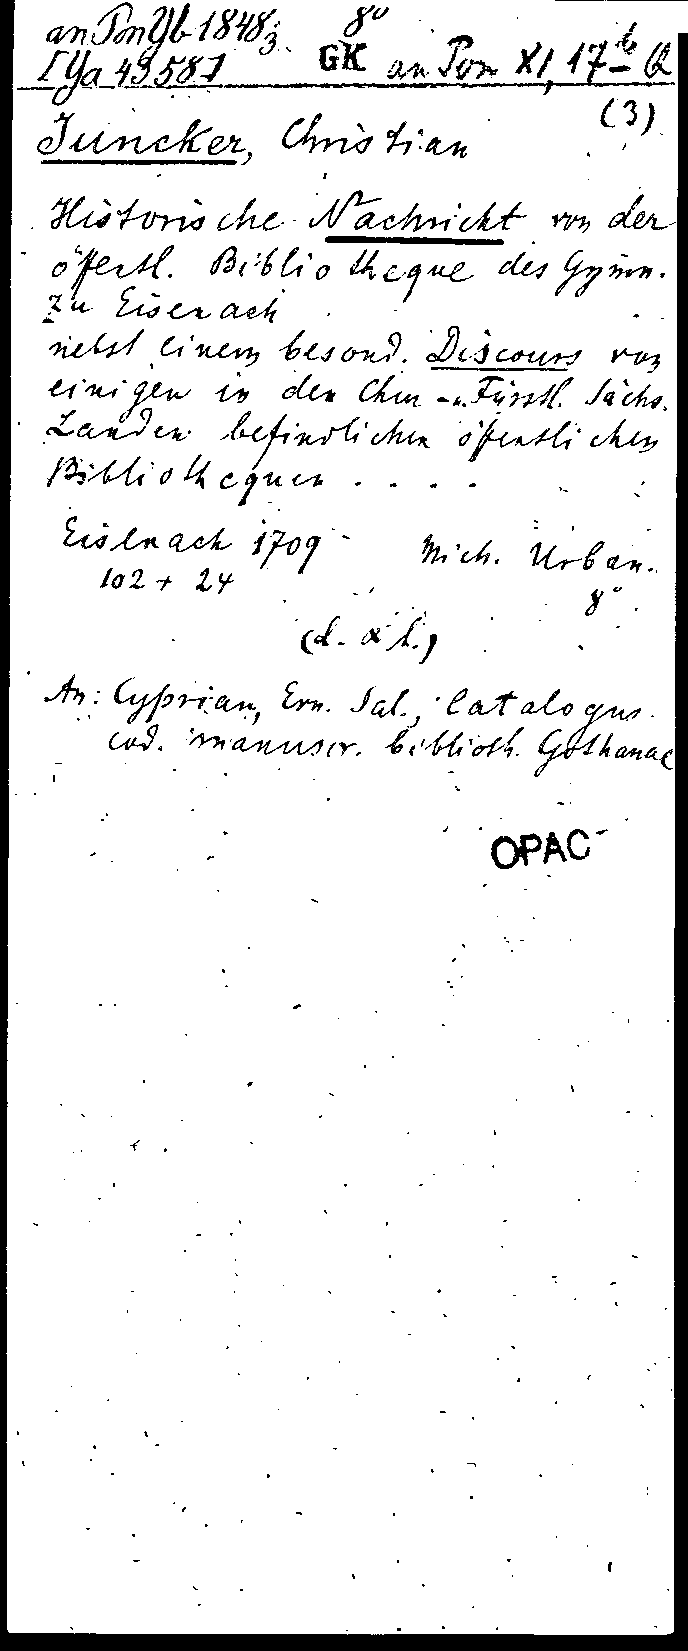 an Pon Yb 1848z 8°
[Ya 4958] GK an Pon XI, 17b Q
(3)
Juncker, Christian
Historische Nachricht von der
öffentl. Bibliotheque des Gymn.
zu Eisenach
nebst einem besond. Discours von
einigen in den Chur- u. Fürstl. Sächs.
Landen befindlichen öffentlichen
Bibliothequen . . . .
Eisenach 1709 Mich. Urban.
102 + 24 8°
An: Cyprian, Ern. Sal., Catalogus
cod. manuscr. biblioth. Gothanae
OPAC